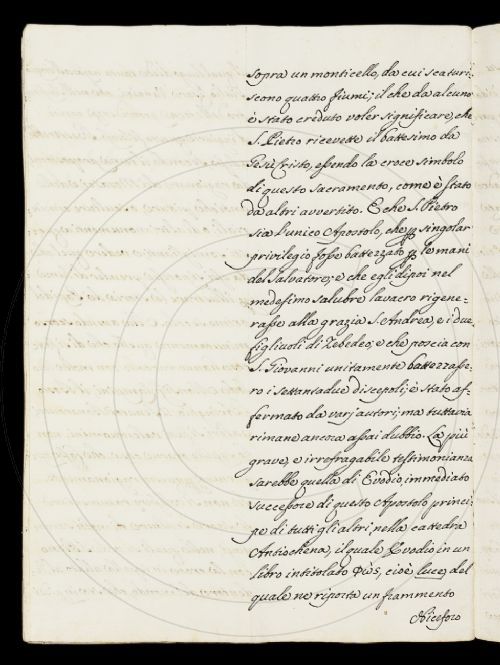 sopra un monticello, da cui scaturi-
scono quattro fiumi; il che da alcuno
è stato creduto voler significare, che
S. Pietro ricevette il battesimo da
Gesù Cristo, essendo la croce simbolo
di questo sacramento, come è stato
da altri avvertito. E che S. Pietro
sia l'unico Apostolo, che ꝑ singolar
privilegio fosse battezzato ꝑ le mani
del Salvatore; e che egli dipoi nel
medesimo salubre lavacro rigene-
rasse alla grazia S. Andrea, e i due
figliuoli di Zebedeo; e che poscia con
S. Giovanni unitamente battezzasse-
ro i settantadue discepoli; è stato af-
fermato da varj autori; ma tuttavia
rimane ancora assai dubbio. La più
grave, e irrefragabile testimonianza
sarebbe quella di Evodio, immediato
successore di questo Apostolo princi-
pe di tutti gli altri nella cattedra
Antiochena, il quale Evodio in un
libro intitolato Φῶς, cioè luce, del
quale ne riporta un frammento
Niceforo